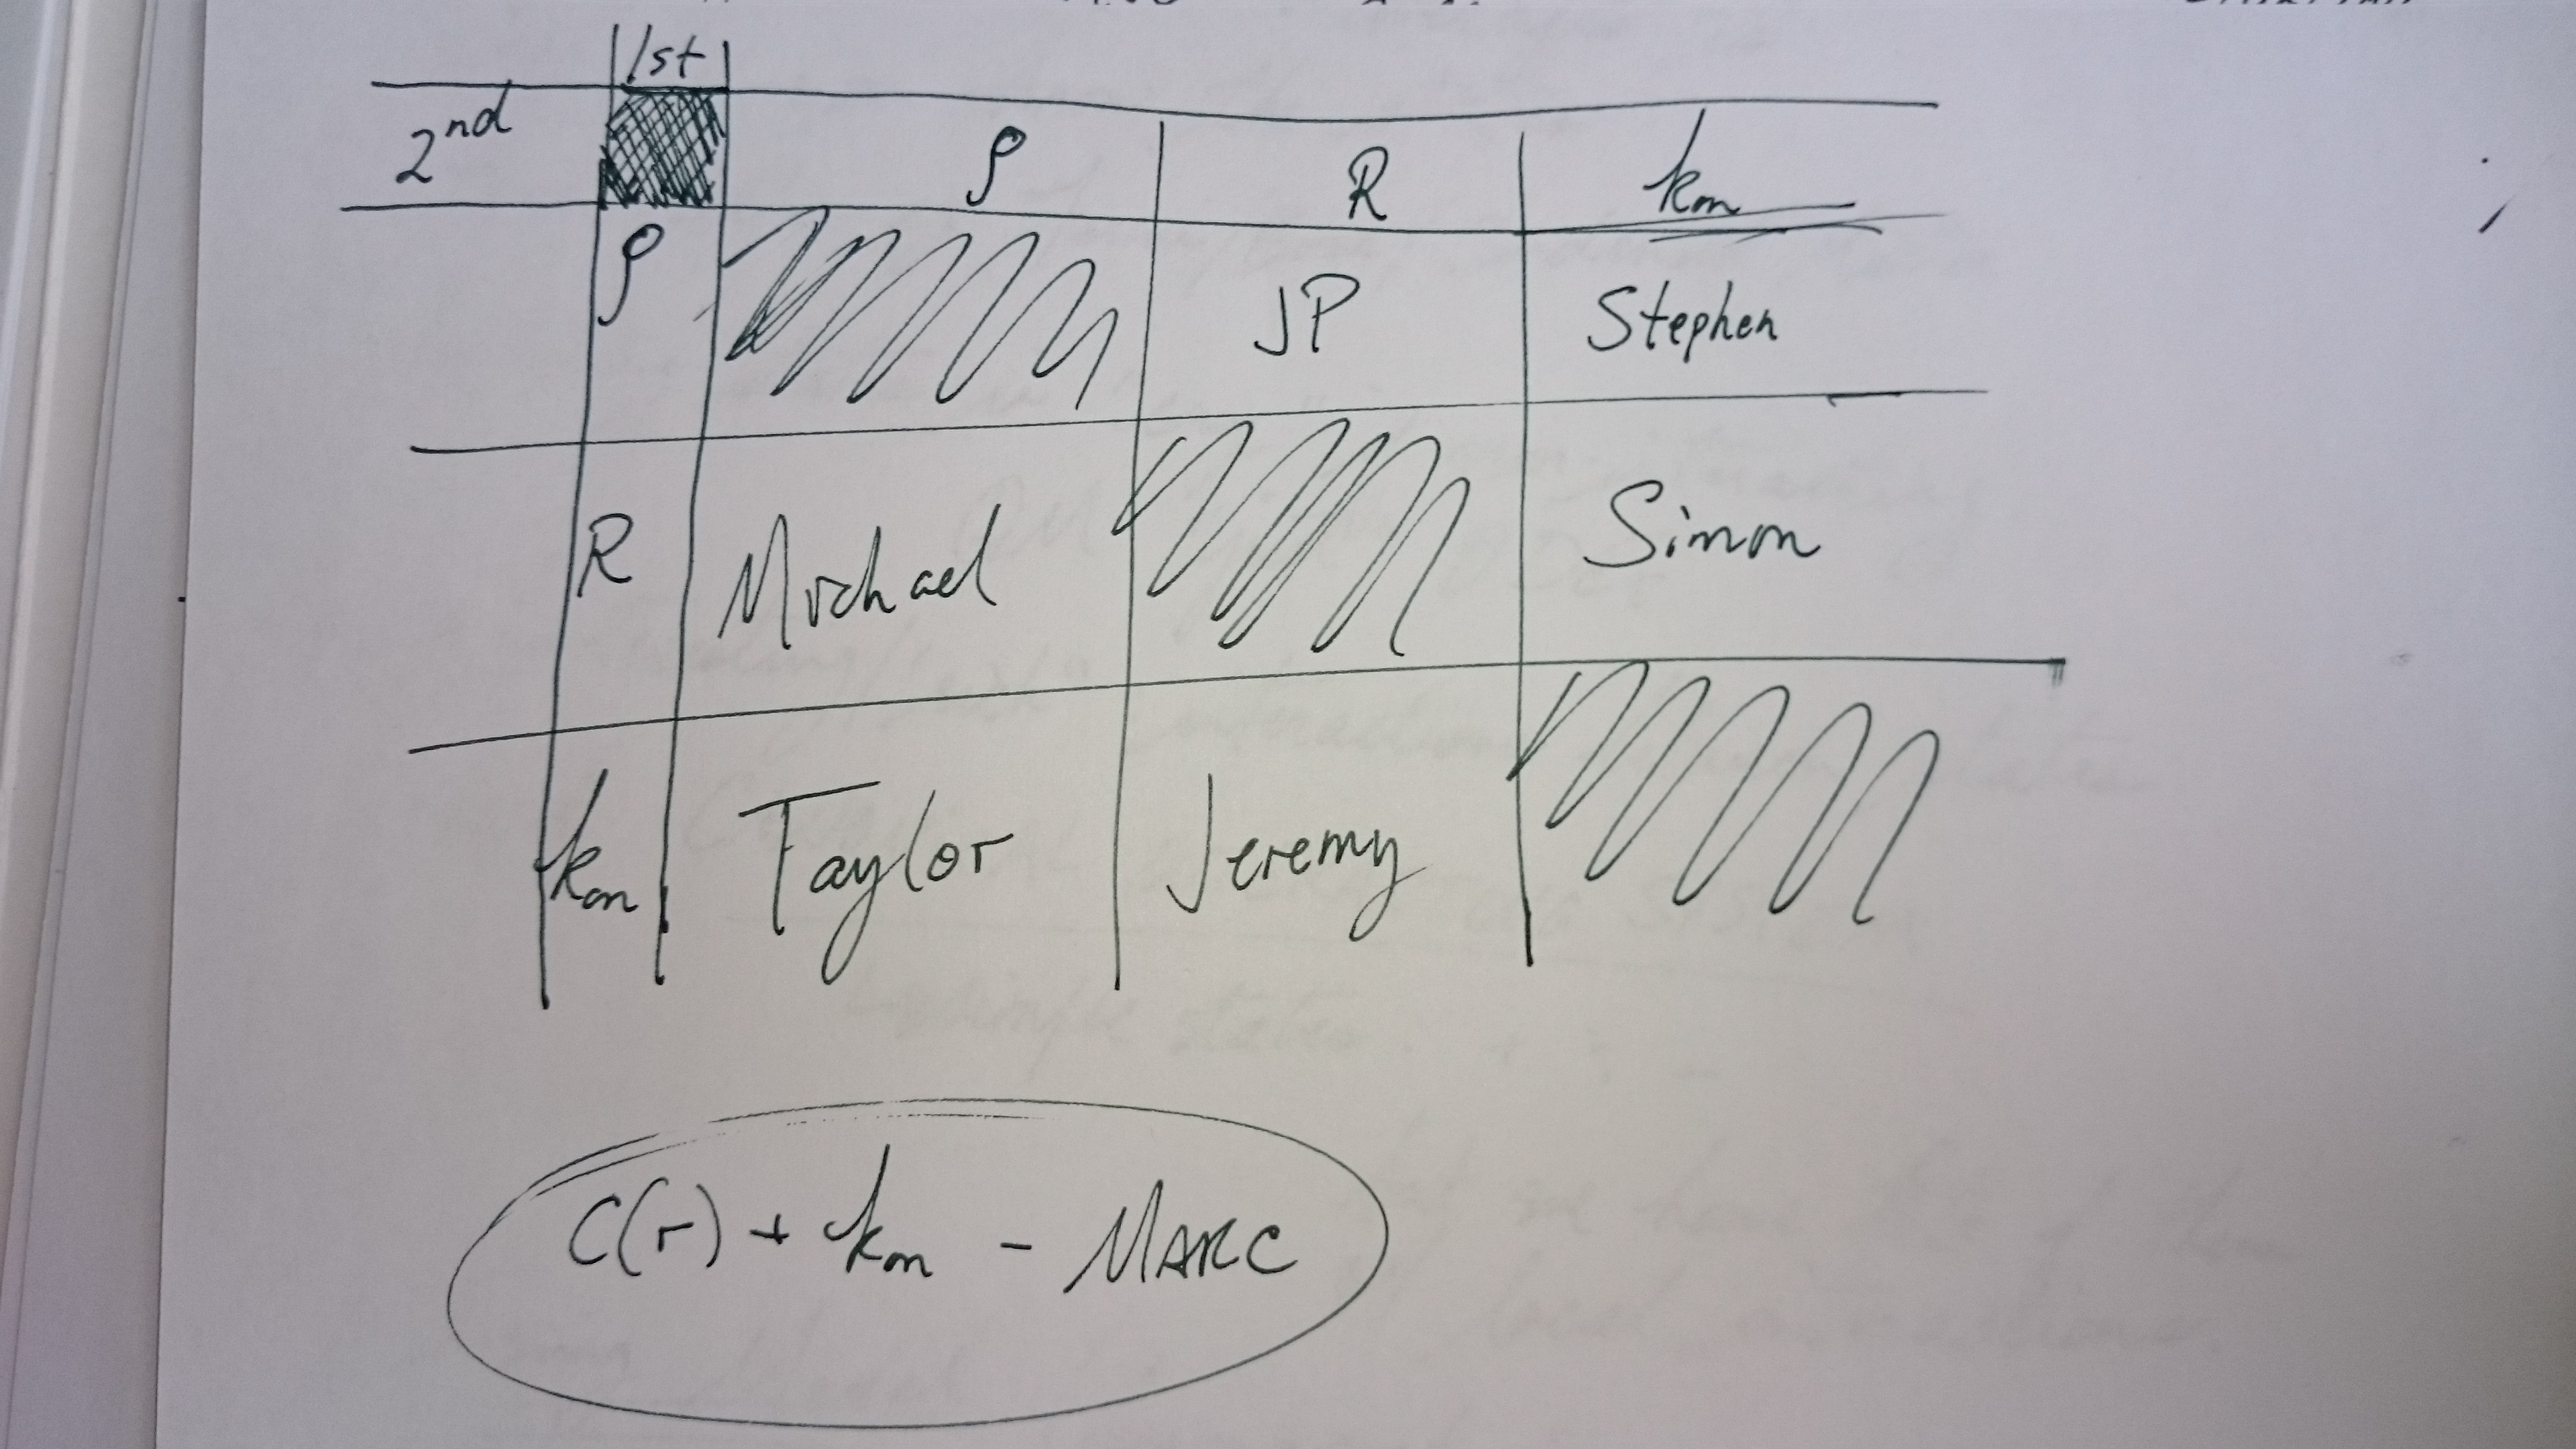 1st
2nd ρ R km
ρ JP Stephen
R Michael Simon
km Taylor Jeremy
C(r) + km - MARC